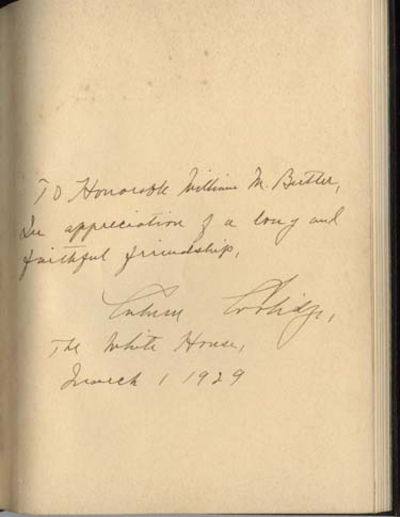 To Honorable William M. Butler,
In appreciation of a long and
faithful friendship,
Calvin Coolidge,
The White House,
March 1 1929